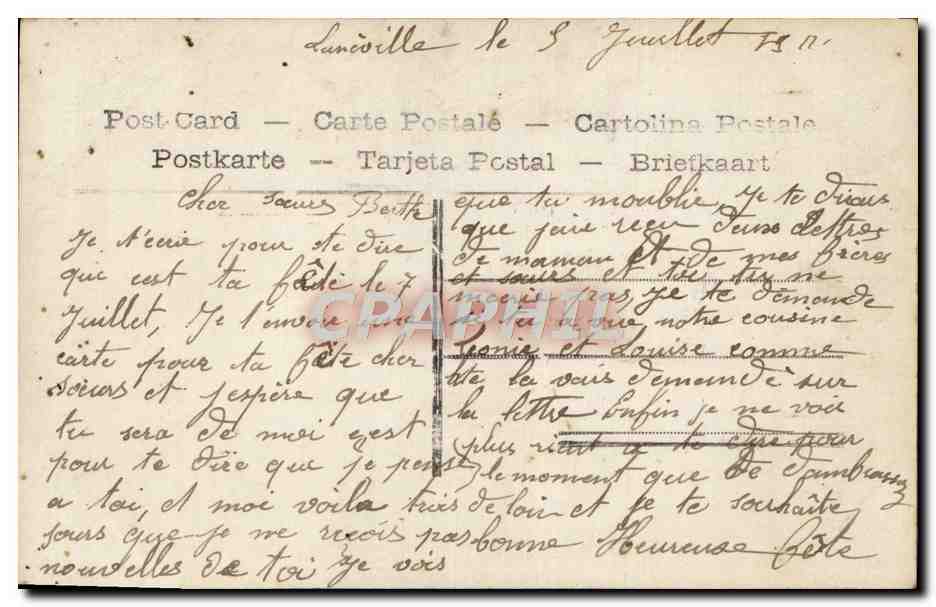 Lunéville le 5 Juillet
Post Card — Carte Postale — Cartolina Postale
Postkarte — Tarjeta Postal — Briefkaart
Cher sœurs Berthe
Je t'écrie pour te dire
qui est ta fête le 7
Juillet, Je t'envoie une
carte pour ta fête cher
sœurs et j'espère que
tu sera de moi c'est
pour te dire que je pense
a toi, et moi voila trois
jours que je ne reçois pas
nouvelles de toi Je vois
que tu m'oublie, Je te dirais
que j'aie reçu deux lettres
de maman et de mes frères
et sœurs et toi tu ne
m'ecrie pas, Je te demande
si tu a vue notre cousine
Leonie et Louise comme
te la vais demandé sur
la lettre Enfin je ne voir
plus rient a te dire pour
le moment que de d'ambrasser
de loin et je te souhaite
bonne Heureuse fête
CRAPHIL